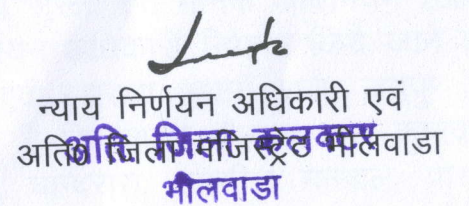 न्याय निर्णयन अधिकारी एवं
अति० जिला मजिस्ट्रेट भीलवाडा
अति. जिला कलक्टर
भीलवाडा